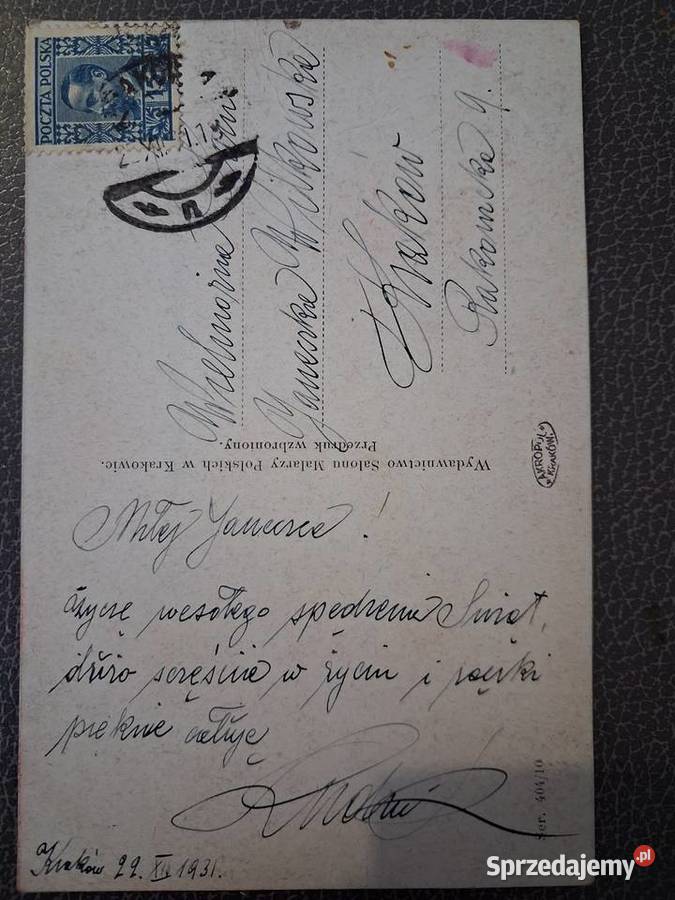 POCZTA POLSKA
15
Wielmożna Panna
Janeczka Wilkowska
Kraków
Rakowicka 9.
Wydawnictwo Salonu Malarzy Polskich w Krakowie.
Przedruk wzbroniony.
AKROPOL
KRAKÓW
Miłej Janeczce!
Życzę wesołego spędzenia Świąt,
dużo szczęścia w życiu i rączki
pięknie całuję
Kraków 22. XII 1931.
Ser. 404/10
Sprzedajemy.pl